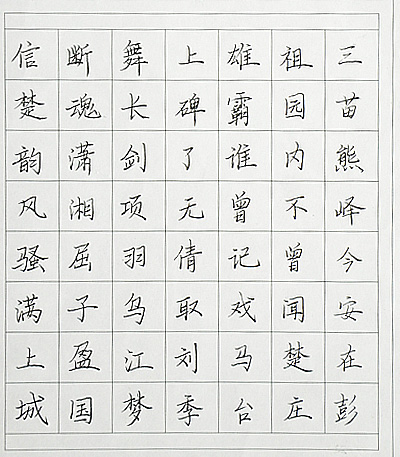 三苗熊峄今安在彭
祖园内不曾闻楚庄
雄霸谁曾记戏马台
上碑了无倩取刘季
舞长剑项羽乌江梦
断魂潇湘屈子盈国
信楚韵风骚满上城